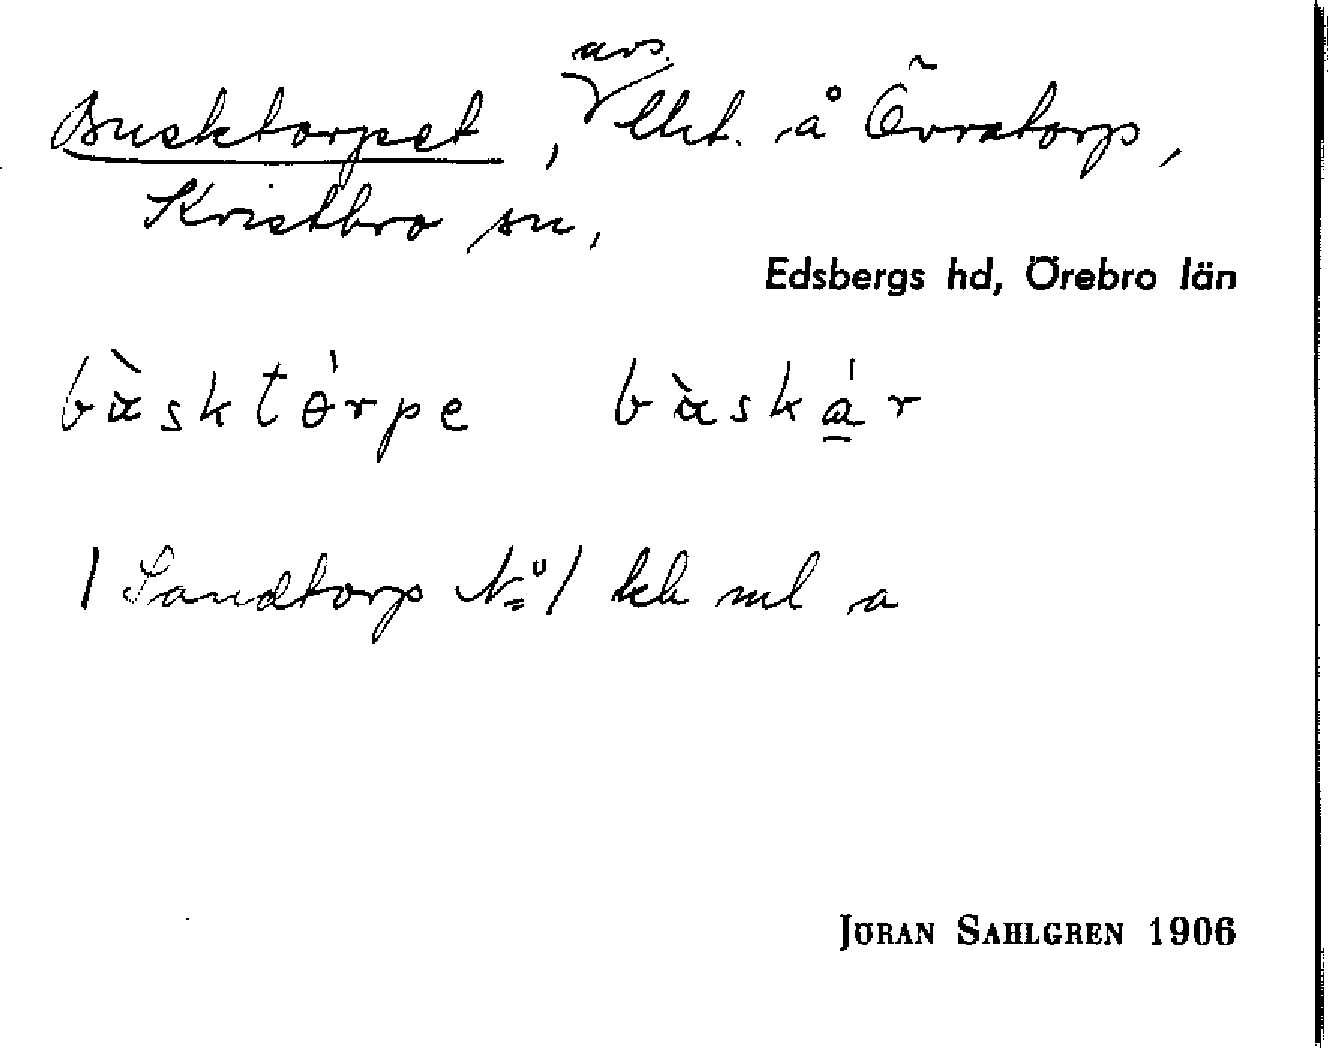 Busktorpet, avs. lht. å Övratorp,
Kvistbro sn,
Edsbergs hd, Örebro län
bàsktɵ́rpe bàská̲r
1 Sandtorp No 1 ml a
JÖRAN SAHLGREN 1906